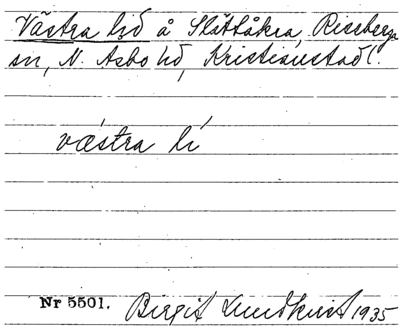 Västra lid å Slättåkra, Riseberga
sn, N. Åsbo hd, Kristianstad l.
västra li
Nr 5501. Birgit Lundkvist 1935